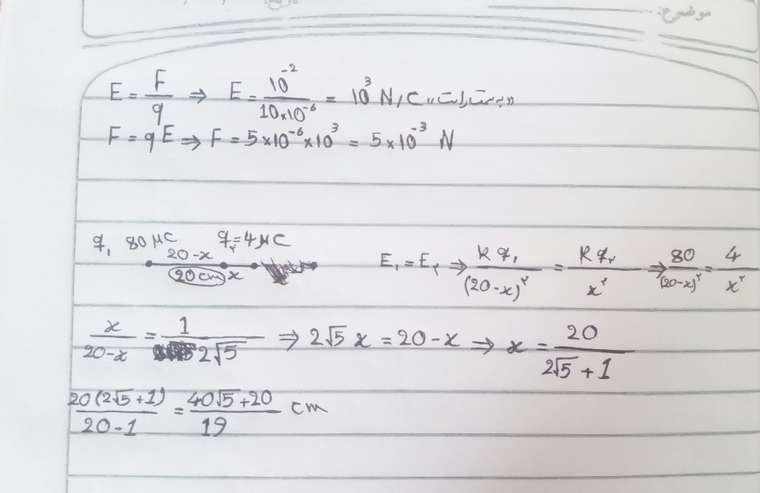 موضوع:
E = F/q ⇒ E = 10⁻²/10×10⁻⁶ = 10³ N/C «به سمت راست»
F = qE ⇒ F = 5×10⁻⁶×10³ = 5×10⁻³ N
q₁ 80 μC q₂=4 μC
20-x
20 cm x
E₁ = E₂ ⇒ kq₁/(20-x)² = kq₂/x² ⇒ 80/(20-x)² = 4/x²
x/20-x = 1/2√5 ⇒ 2√5 x = 20-x ⇒ x = 20/2√5+1
20(2√5+1)/20-1 = 40√5+20/19 cm